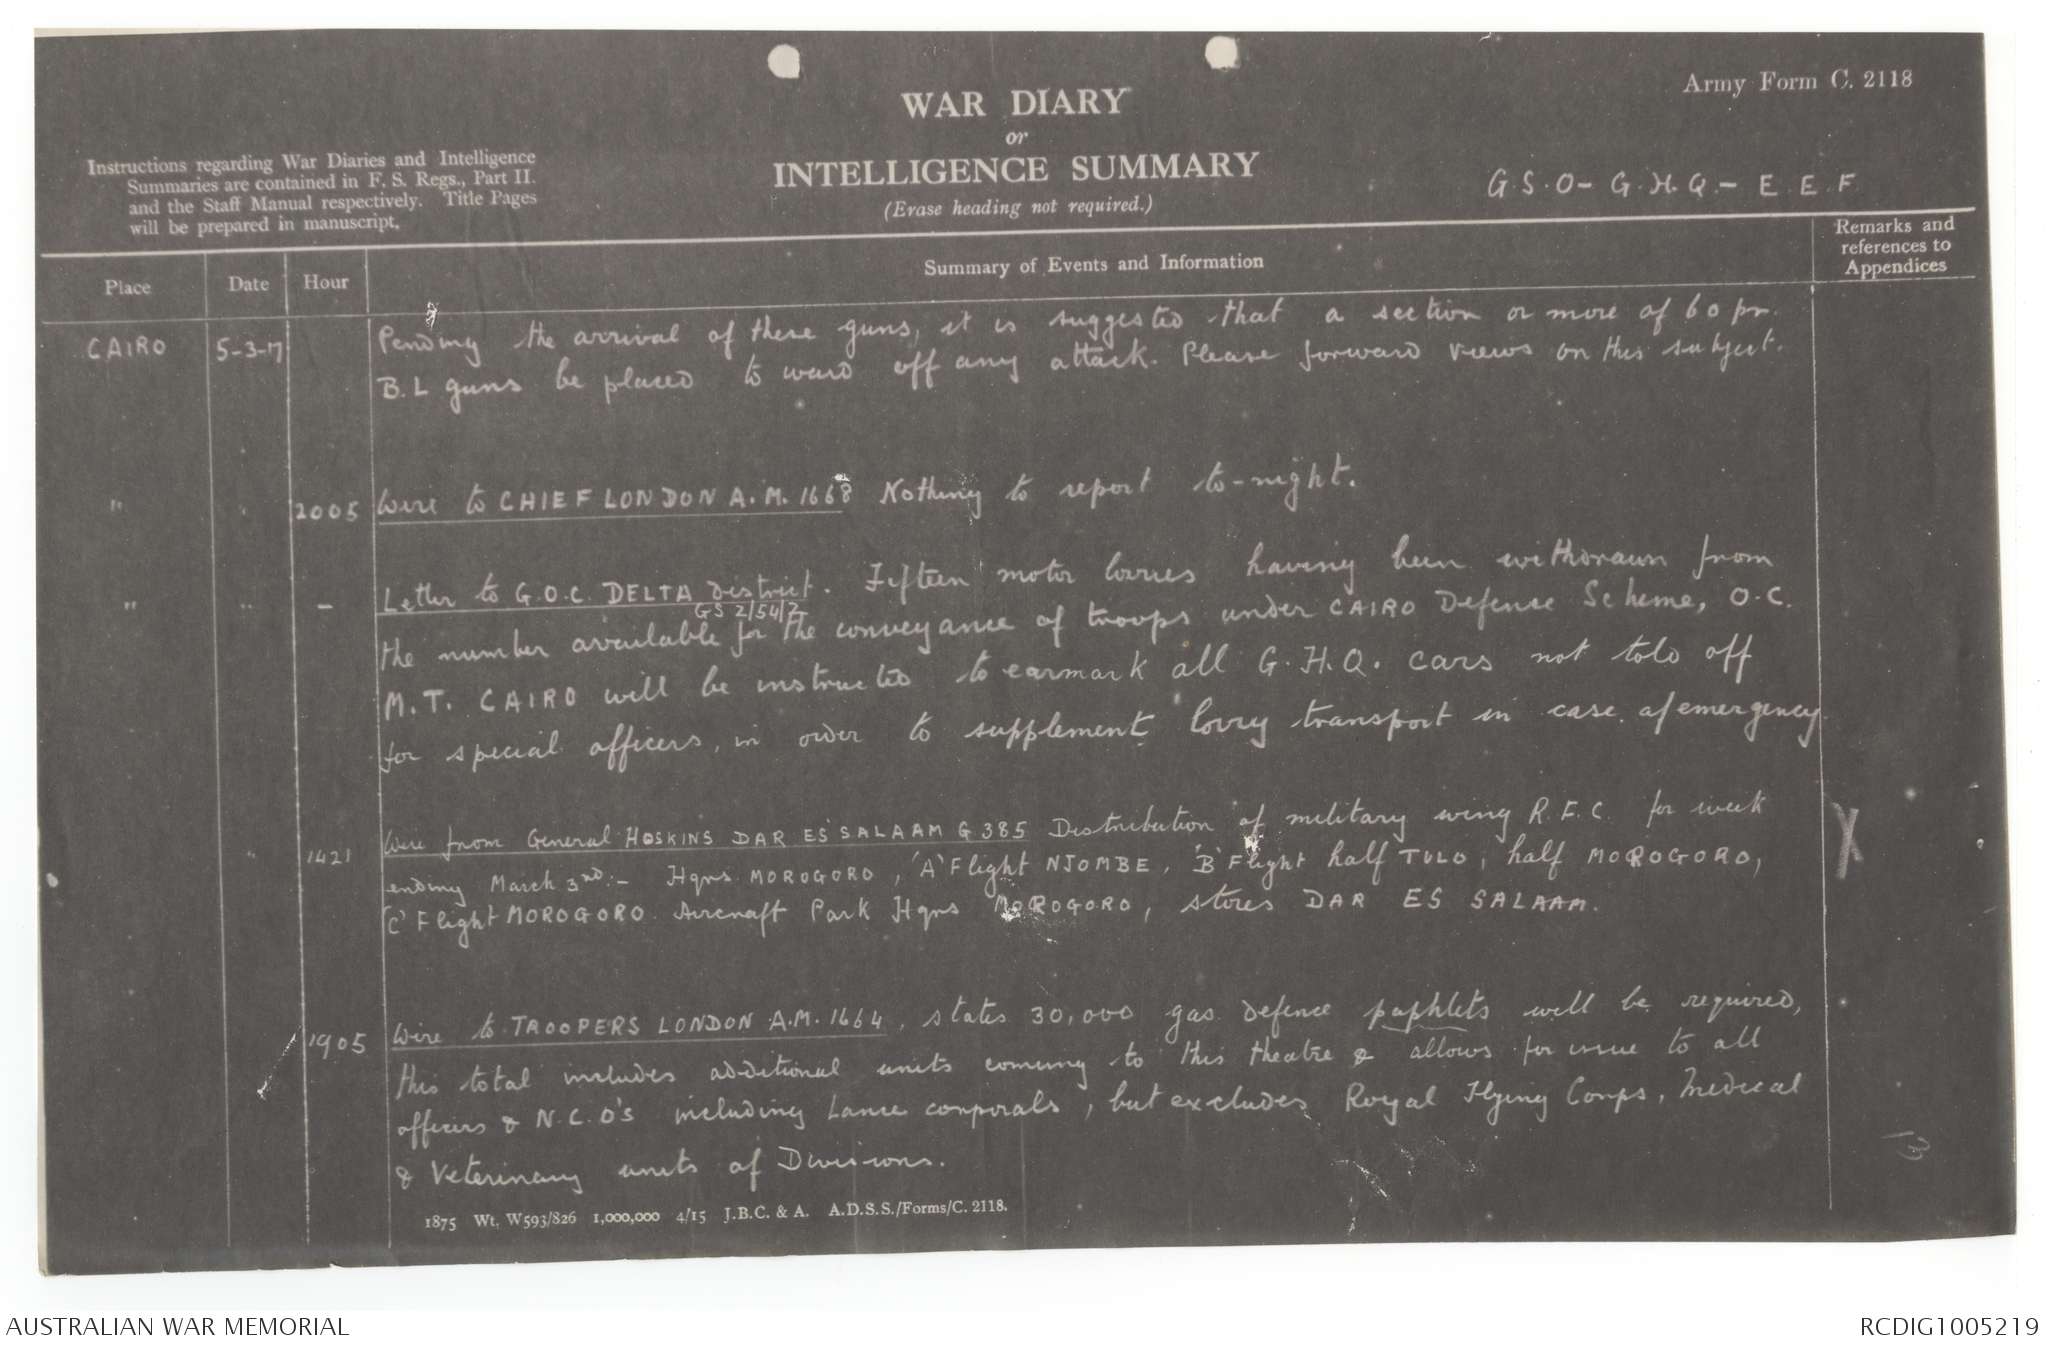 Army Form C. 2118
WAR DIARY
or
INTELLIGENCE SUMMARY
(Erase heading not required.)
Instructions regarding War Diaries and Intelligence
Summaries are contained in F. S. Regs., Part II.
and the Staff Manual respectively. Title Pages
will be prepared in manuscript.
G.S.O- G.H.Q.- E E F
Place
Date
Hour
Summary of Events and Information
Remarks and
references to
Appendices
CAIRO 5-3-17 Pending the arrival of these guns, it is suggested that a section or more of 60 pr.
B.L guns be placed to ward off any attack. Please forward views on this subject.
" " 2005 Wire to CHIEF LONDON A.M. 1668 Nothing to report to-night.
" " - Letter to G.O.C. DELTA District. Fifteen motor lorries having been withdrawn from
GS 2/54/7
the number available for the conveyance of troops under CAIRO Defense Scheme, O.C.
M.T. CAIRO will be instructed to earmark all G.H.Q. cars not told off
for special officers, in order to supplement lorry transport in case of emergency
" 1421 Wire from General HOSKINS DAR ES SALAAM G 385 Distribution of military wing R.F.C. for week
ending March 3nd:- Hqrs MOROGORO, 'A' Flight NJOMBE, 'B' Flight half TULO, half MOROGORO,
'C' Flight MOROGORO. Aircraft Park Hqrs MOROGORO, stores DAR ES SALAAM.
1905 Wire to TROOPERS LONDON A.M. 1664, states 30,000 gas defence paphlets will be required,
this total includes additional units coming to this theatre & allows for issue to all
officers & N.C.O's including Lance corporals, but excludes Royal Flying Corps, Medical
& Veterinary units of Divisions.
1875 Wt. W593/826 1,000,000 4/15 J.B.C. & A. A.D.S.S./Forms/C. 2118.
AUSTRALIAN WAR MEMORIAL
RCDIG1005219